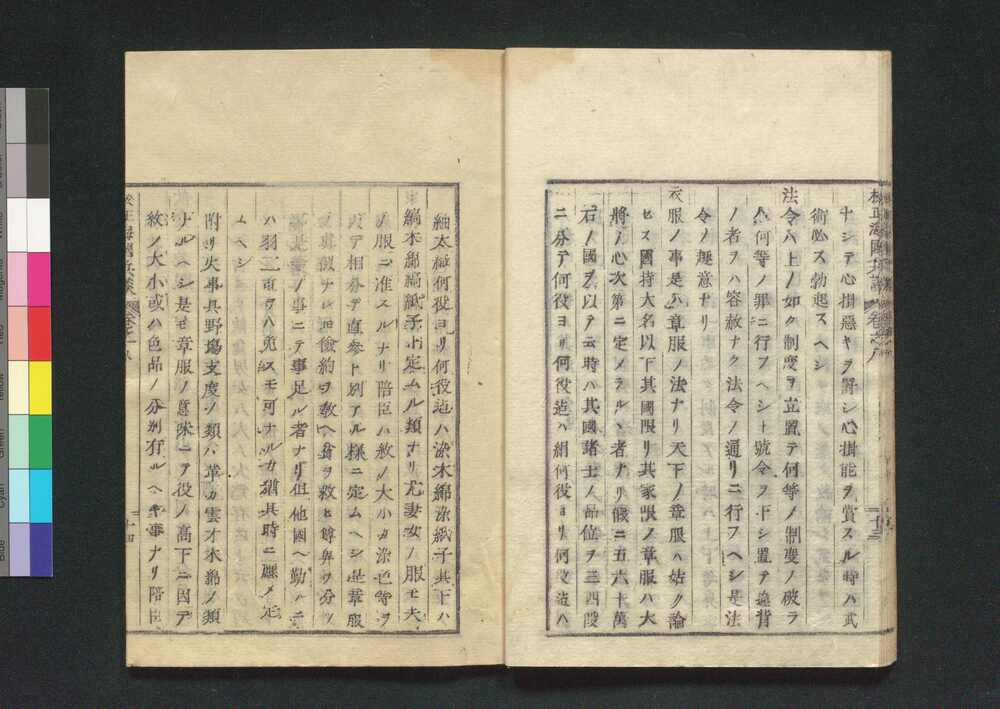 十シテ心掛惡キヲ罸シ心掛能ヲ賞スル時ハ武
術必ス勃起スヘシ
法令ハ上ノ如ク制度ヲ立置テ何等ノ制度ノ破ラ
何等ノ罪ニ行フヘシト號令ヲ下シ置テ違背
ノ者ヲハ容赦ナク法令ノ通リニ行フヘシ是法
令ノ趣意ナリ
衣服ノ事是ハ章服ノ法ナリ天下ノ章服ハ姑ク論
ヒス國持大名以下其國限リ其家限ノ章服ハ大
將ノ心次第ニ定メラルヽ者ナリ假ニ五六十萬
石ノ國ヲ以テ云時ハ其國諸士ノ品位ヲ三四段
ニ分テ何役ヨリ何役迄ハ絹何役ヨリ何役迄ハ
紬太織何役ヨリ何役迄ハ染木綿染紙子其下ハ
縞木綿縞紙子ト定ムル類ナリ尤妻女ノ服モ夫
ノ服ニ准スルナリ陪臣ハ紋ノ大小カ染色等ヲ
以テ相分テ直參ト別アル樣ニ定ムヘシ是章服
ナレ𪜈儉約ヲ教ヘ貧ヲ救ヒ尊卑ヲ分ツ
ノ事ニテ事足ル者ナリ但他國ヘ勤ルニ
ハ羽二重ヲハ免スモ可ナルカ猶其時ニ臨メ定
ムヘシ
附リ火事具野塲支度ノ類ハ革カ雲才木綿ノ類
ナルヘシ是モ章服ノ意味ニテ役ノ高下ニ因テ
紋ノ大小或ハ色品ノ分別有ルヘキ事ナリ陪臣
十三
十四